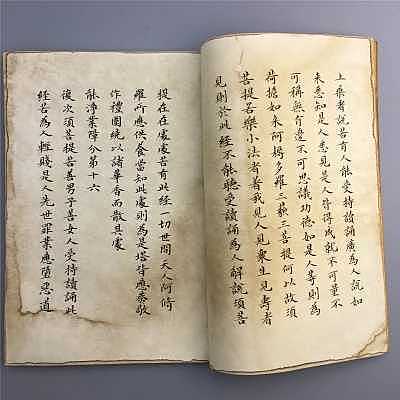 上乘者說若有人能受持讀誦廣為人說如
来悉知是人悉見是人皆得成就不可量不
可稱無有邊不可思議功德如是人等則為
荷擔如来阿耨多羅三藐三菩提何以故須
菩提若樂小法者著我見人見眾生見壽者
見則於此經不能聽受讀誦為人解說須菩
提在在處處若有此經一切世間天人阿脩
羅所應供養當知此處則為是塔皆應恭敬
作禮圍繞以諸華香而散其處
能淨業障分第十六
復次須菩提若善男子善女人受持讀誦此
經若為人輕賤是人先世罪業應墮惡道